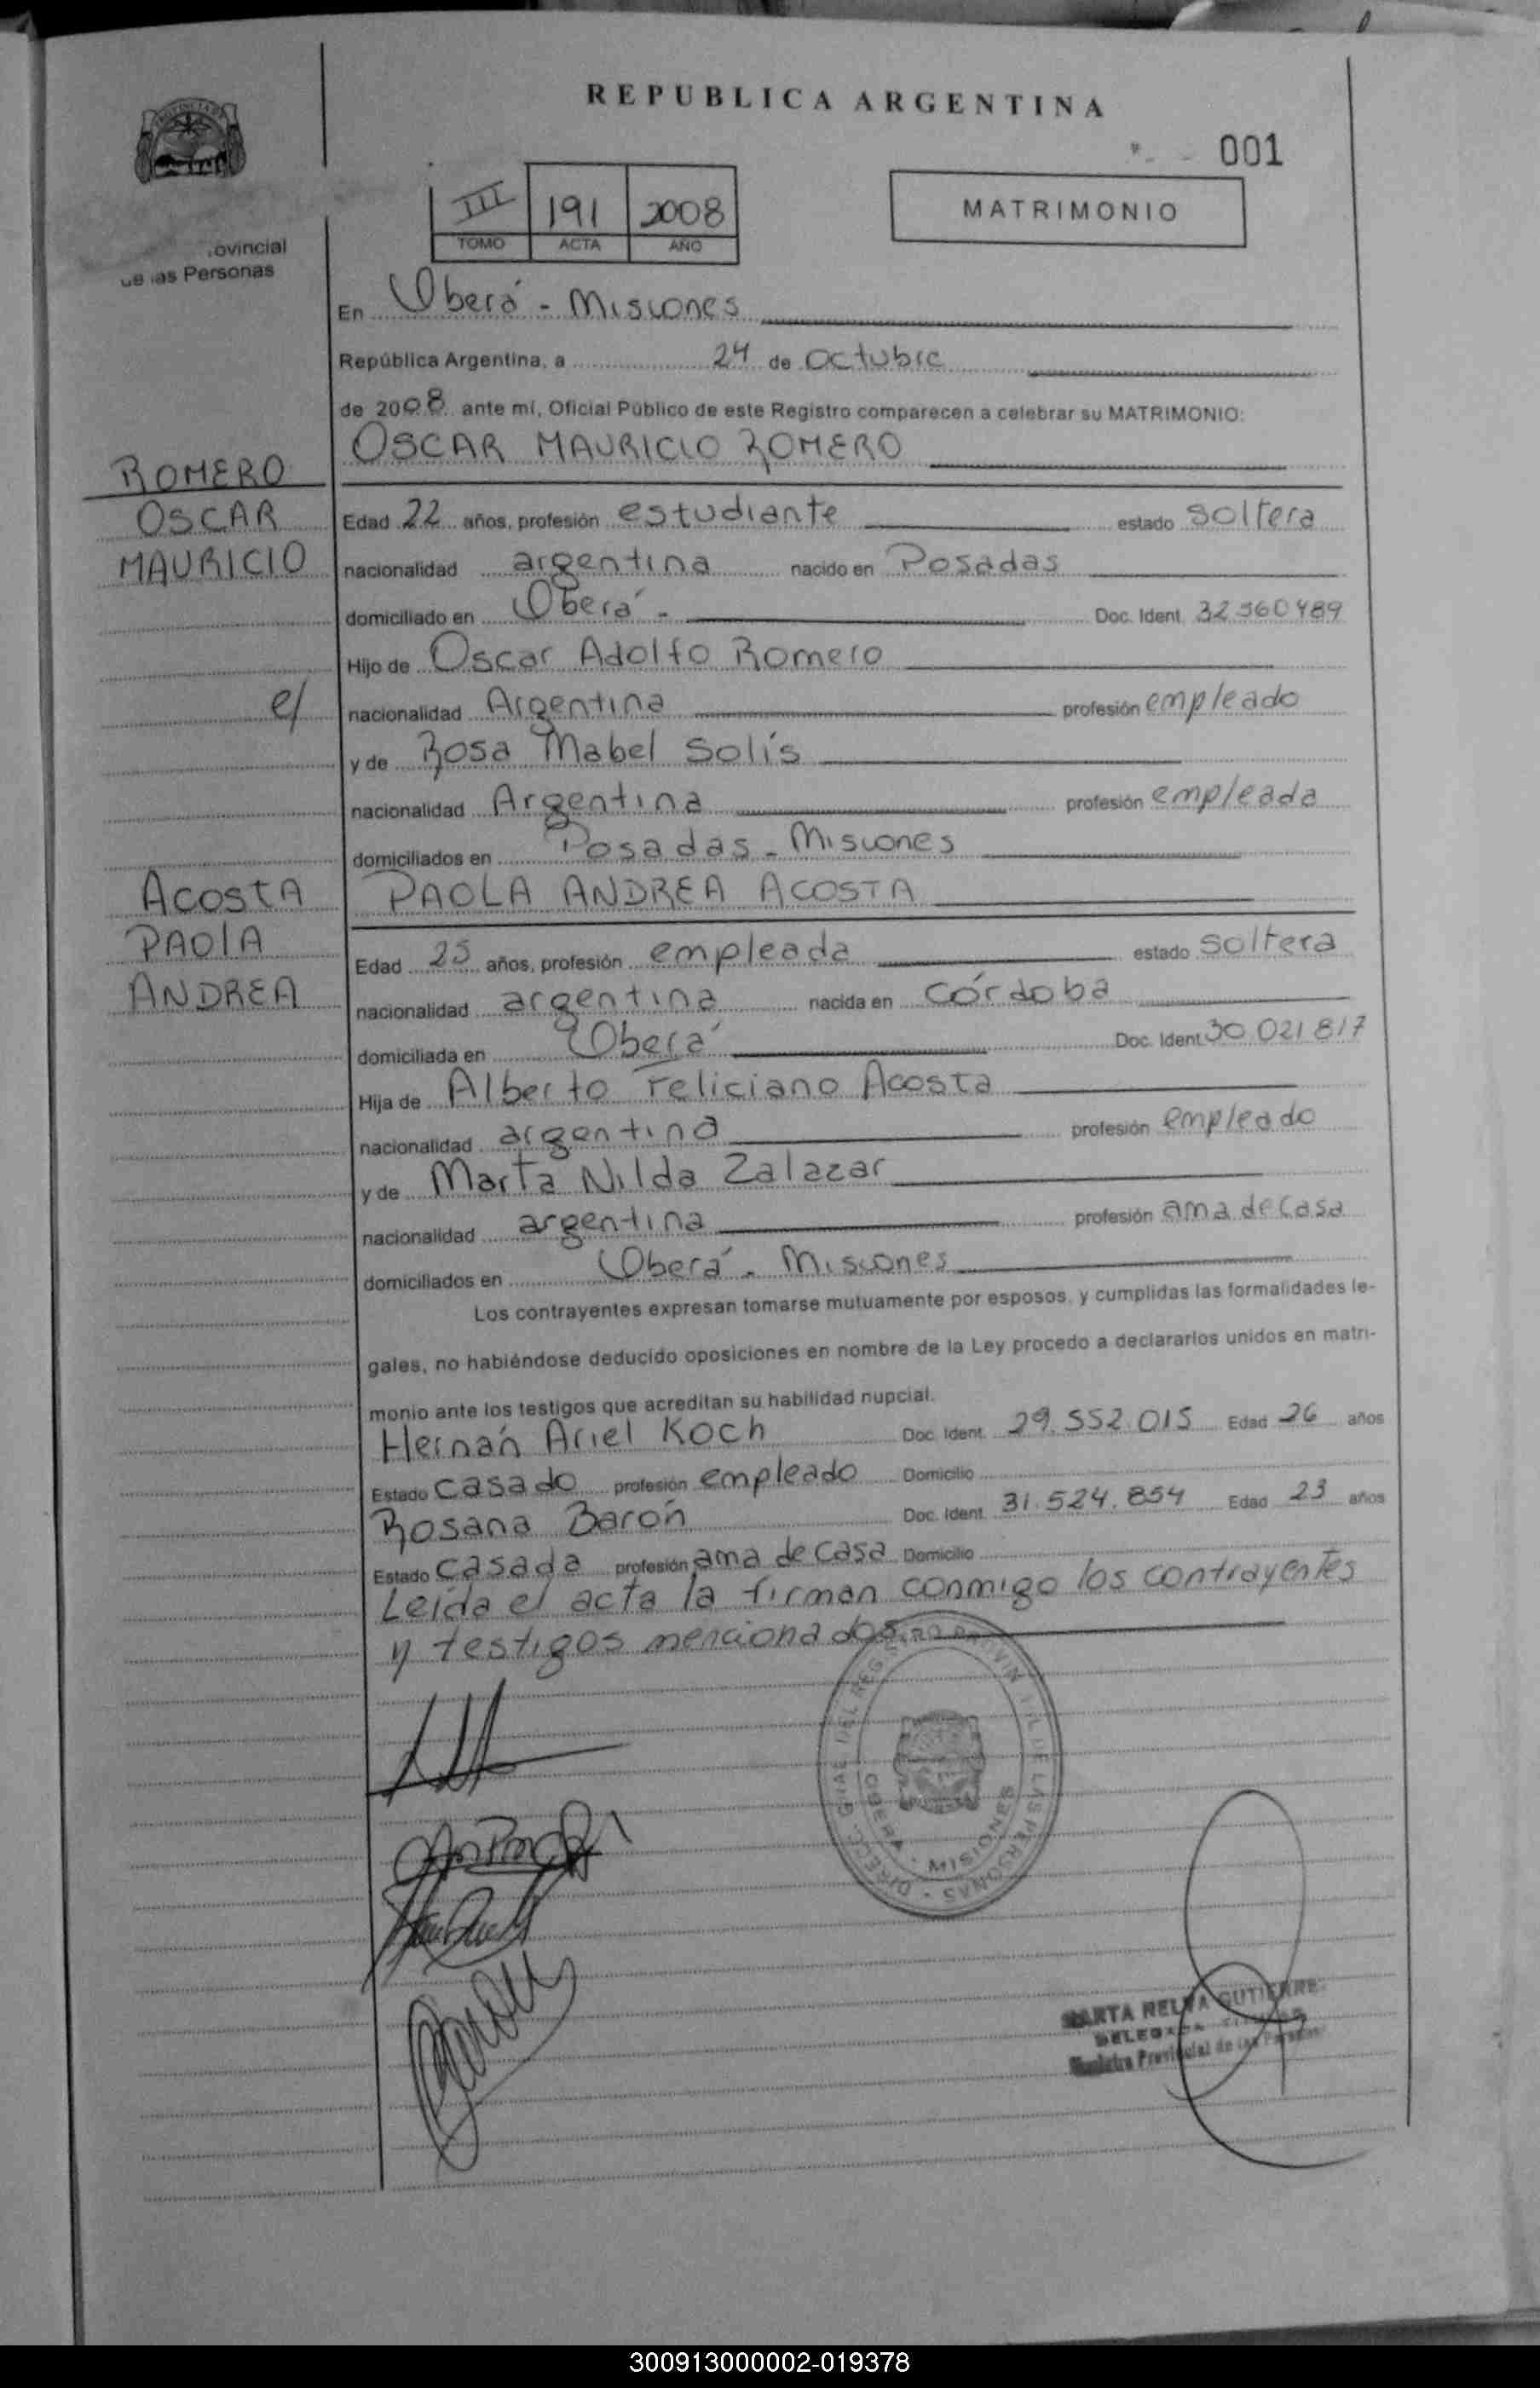 REPUBLICA ARGENTINA
001
III 191 2008
TOMO ACTA AÑO
MATRIMONIO
ovincial
de las Personas
En Oberá - Misiones
República Argentina, a 24 de Octubre
de 2008 ante mí, Oficial Público de este Registro comparecen a celebrar su MATRIMONIO:
OSCAR MAURICIO ROMERO
ROMERO
OSCAR
MAURICIO
Edad 22 años, profesión estudiante estado soltera
nacionalidad argentina nacido en Posadas
domiciliado en Oberá - Doc. Ident. 32.560489
Hijo de Oscar Adolfo Romero
e/
nacionalidad Argentina profesión empleado
y de Rosa Mabel Solís
nacionalidad Argentina profesión empleada
domiciliados en Posadas - Misiones
ACOSTA
PAOLA
ANDREA
PAOLA ANDREA ACOSTA
Edad 25 años, profesión empleada estado soltera
nacionalidad argentina nacida en Córdoba
domiciliada en Oberá Doc. Ident. 30.021.817
Hija de Alberto Feliciano Acosta
nacionalidad argentina profesión empleado
y de Marta Nilda Zalazar
nacionalidad argentina profesión ama de casa
domiciliados en Oberá - Misiones
Los contrayentes expresan tomarse mutuamente por esposos, y cumplidas las formalidades le-
gales, no habiéndose deducido oposiciones en nombre de la Ley procedo a declararlos unidos en matri-
monio ante los testigos que acreditan su habilidad nupcial.
Hernán Ariel Koch Doc. Ident. 29.552.015 Edad 26 años
Estado casado profesión empleado Domicilio
Rosana Barón Doc. Ident. 31.524.854 Edad 23 años
Estado casada profesión ama de casa Domicilio
Leída el acta la firman conmigo los contrayentes
y testigos mencionados
DIRECC. GRAL. DEL REGISTRO PROVINCIAL DE LAS PERSONAS
OBERA - MISIONES
MARTA RELVA GUTIERRE
DELEGADA
Registro Provincial de las Personas
300913000002-019378